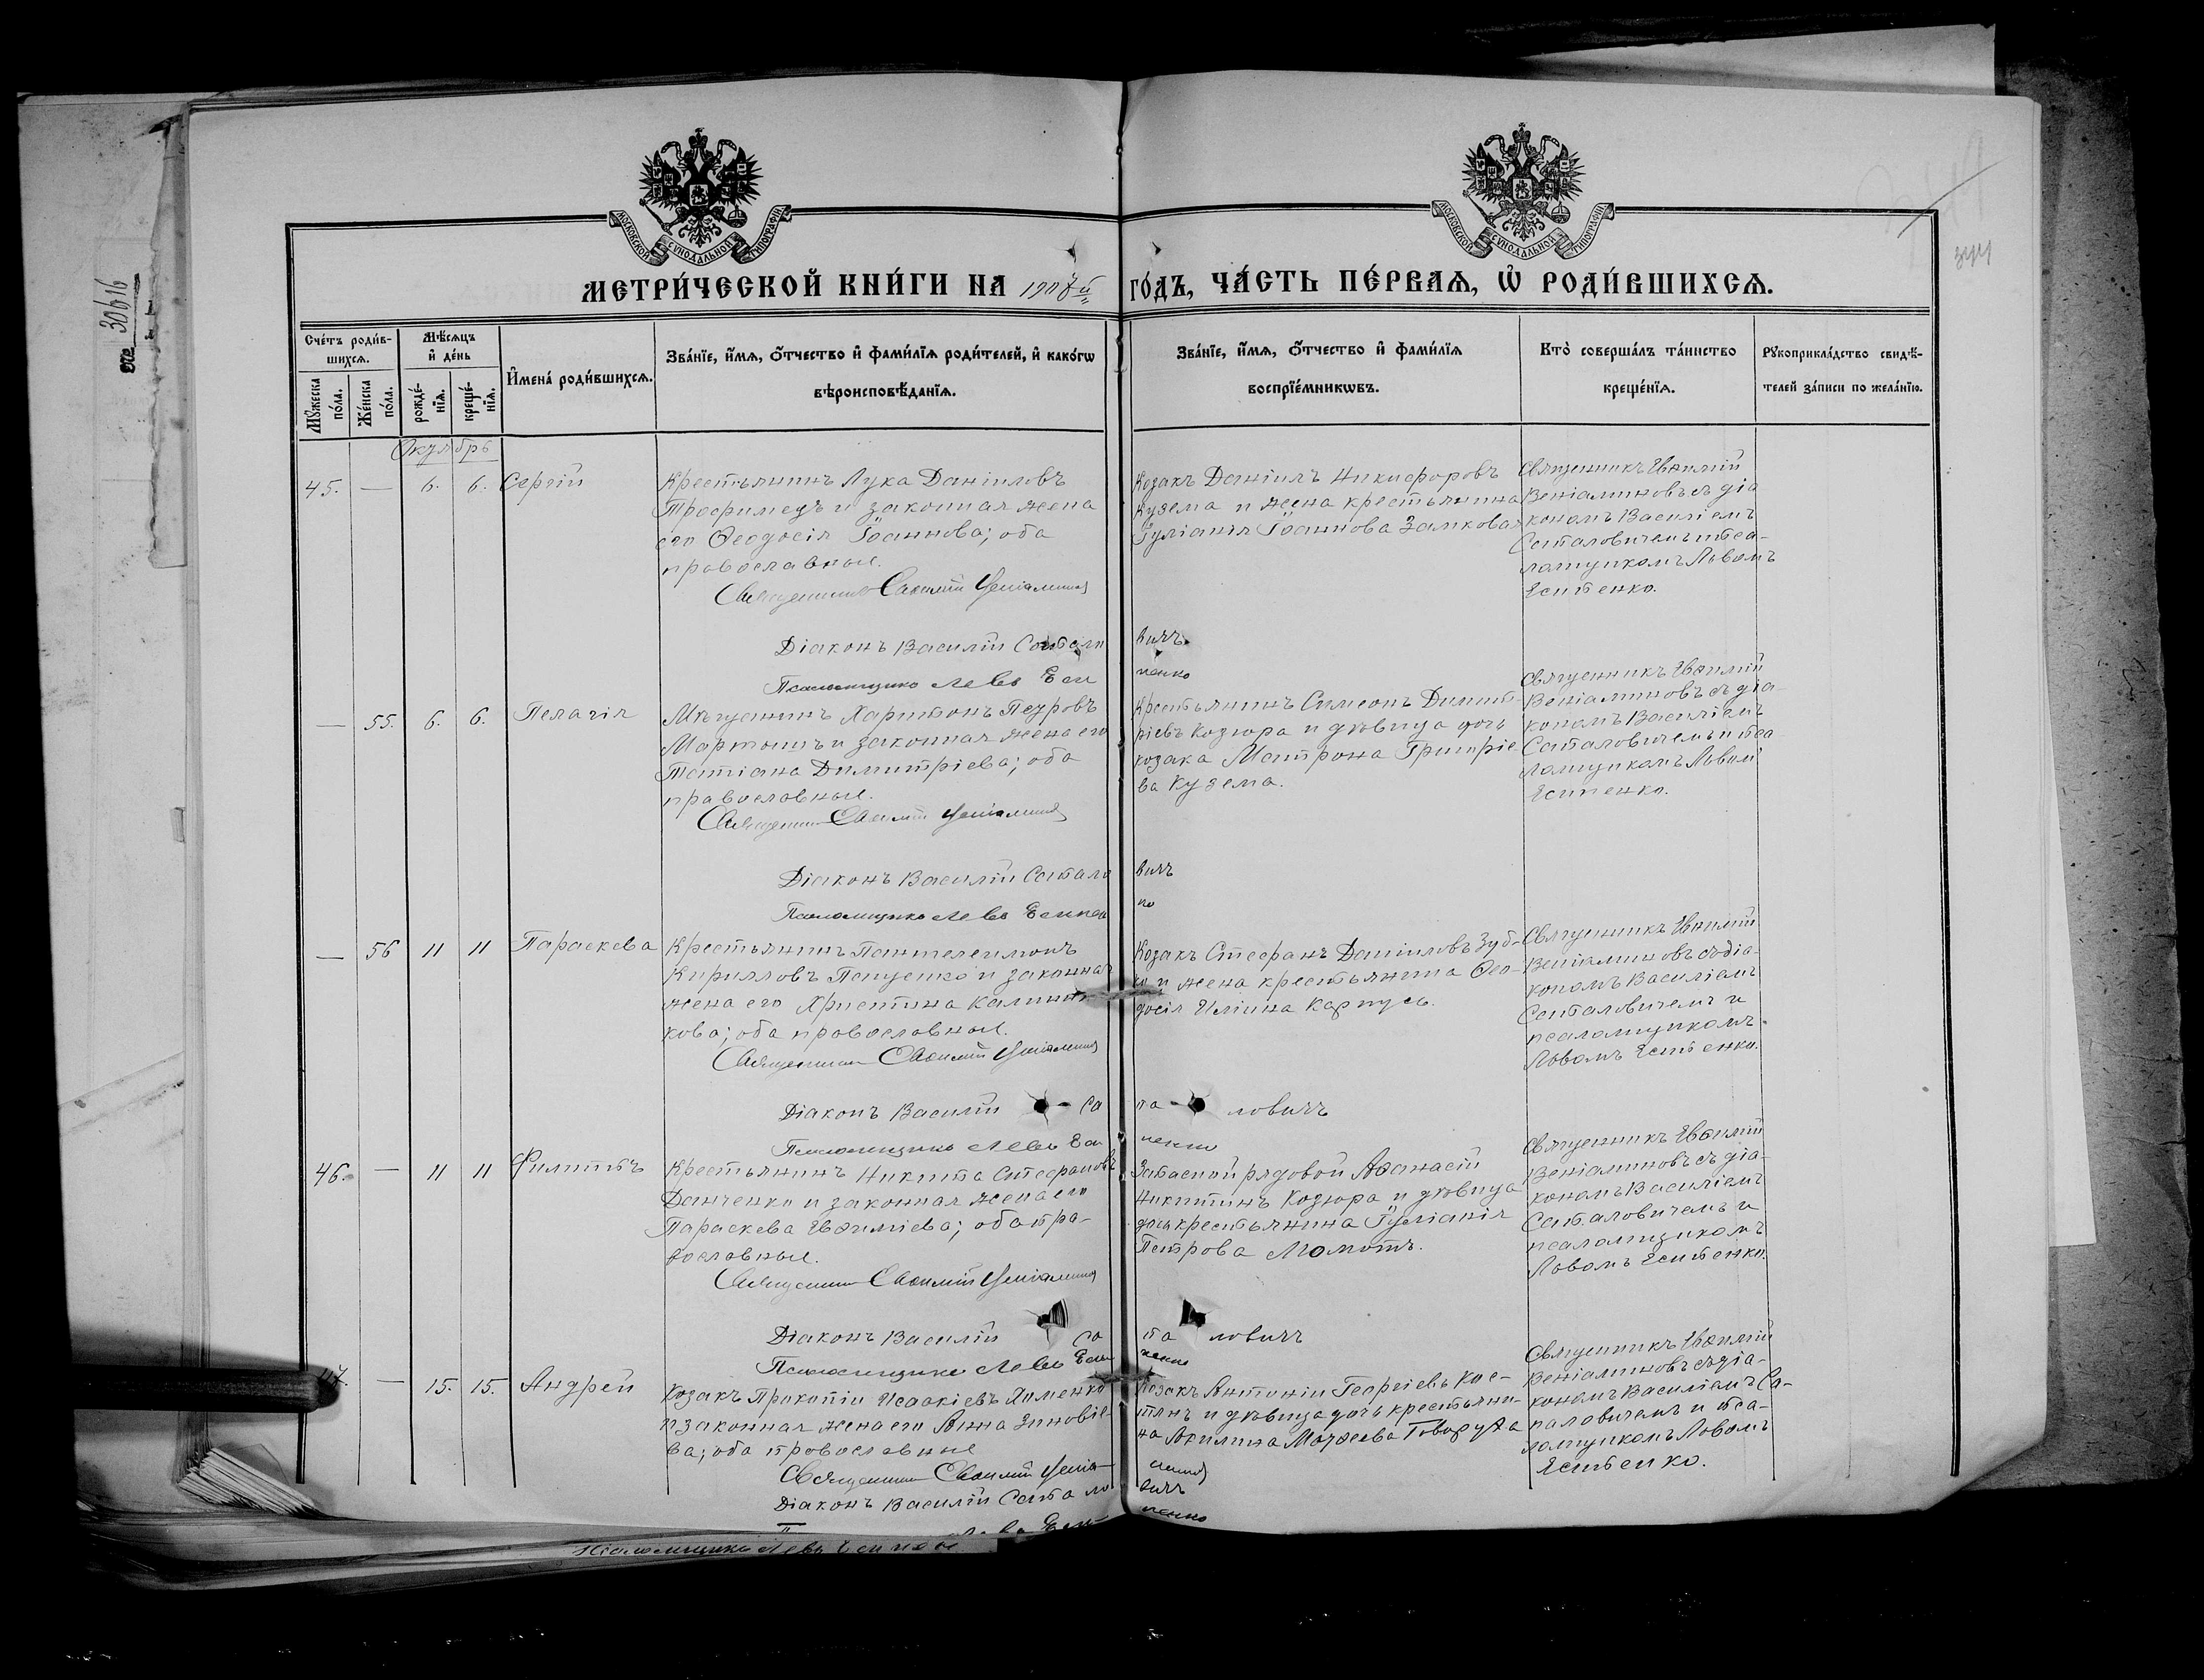 МОСКОВСКОЙ СУНОДАЛЬНОЙ ТИПОГРАФІИ
МОСКОВСКОЙ СУНОДАЛЬНОЙ ТИПОГРАФІИ
МЕТРИ́ЧЕСКОЙ КНИ́ГИ НА 1907й
ГО́ДЪ, ЧА́СТЬ ПЕ́РВАѦ, Ѽ РОДИ́ВШИХСѦ.
30616
344
Сче́тъ роди́в-
шихсѧ.
Мꙋ́жеска по́ла.
Же́нска по́ла.
Мѣ́сѧцъ
и҆ де́нь
рожде́-
нїѧ.
креще́-
нїѧ.
И҆мена́ роди́вшихсѧ.
Зва́нїе, и҆́мѧ, ѻ҆́тчество и҆ фами́лїѧ роди́телей, и҆ како́гѡ
вѣроисповѣ́данїѧ.
Зва́нїе, и҆́мѧ, ѻ҆́тчество и҆ фами́лїѧ
воспрїе́мникѡвъ.
Кто̀ соверша́лъ та́инство
креще́нїѧ.
Рꙋкоприкла́дство свидѣ́-
телей за́писи по жела́нїю.
Октябрь
45. — 6. 6. Сергій
Крестьянинъ Лука Даніиловъ
Трофимецъ и законная жена
его Ѳеодосія Іоаннова; оба
православные.
Священникъ Евѳимій Веніаминовъ
Діаконъ Василій Сапало
вичъ
Псаломщикъ Левъ Еси
пенко
Козакъ Даніилъ Никифоровъ
Кузема и жена крестьянина
Іуліанія Іоаннова Замковая
Священникъ Евѳимій
Веніаминовъ съ діа
кономъ Василіемъ
Сапаловичемъ и пса-
ломщикомъ Львомъ
Есипенко.
— 55. 6. 6. Пелагія
Мѣщанинъ Харитонъ Петровъ
Мартошъ и законная жена его
Татіана Димитріева; оба
православные.
Священникъ Евѳимій Веніаминовъ
Діаконъ Василій Сапало
вичъ
Псаломщикъ Левъ Есипен
ко
Крестьянинъ Симеонъ Димит-
ріевъ Козюра и дѣвица дочь
козака Матрона Григоріе
ва Кузема.
Священникъ Евѳимій
Веніаминовъ съ діа-
кономъ Василіемъ
Сапаловичемъ и пса
ломщикомъ Львом
Есипенко.
— 56 11 11 Параскева
Крестьянинъ Пантелеимонъ
Кирилловъ Пащенко и законная
жена его Христина Калинни
кова; оба православные.
Священникъ Евѳимій Веніаминовъ
Діаконъ Василій Са
па ловичъ
Псаломщикъ Левъ Еси
пенко
Козакъ Стефанъ Даніиловъ Зуб-
ко и жена крестьянина Ѳео-
досія Иліина Карпусь.
Священникъ Евѳимій
Веніаминовъ съ діа-
кономъ Василіемъ
Сапаловичемъ и
псаломщикомъ
Львомъ Есипенко.
46. — 11 11 Филиппъ
Крестьянинъ Никита Стефановъ
Данченко и законная жена его
Параскева Евѳиміева; оба пра-
вославные.
Священникъ Евѳимій Веніаминовъ
Діаконъ Василій Са
па ловичъ
Псаломщикъ Левъ Еси
пенко
Запасной рядовой Аѳанасій
Никитинъ Козюра и дѣвица
дочь крестьянина Іуліанія
Петрова Момотъ.
Священникъ Евѳимій
Веніаминовъ съ діа-
кономъ Василіемъ
Сапаловичемъ и
псаломщикомъ
Львомъ Есипенко.
47. — 15. 15. Андрей
Козакъ Прокопій Исаакіевъ Хименко
и законная жена его Анна Зиновіе-
ва; оба православные
Священникъ Евѳимій Веніа-
миновъ
Діаконъ Василій Сапало
вичъ
Левъ Еси-
пенко
Козакъ Антоній Георгіевъ Кос-
тянъ и дѣвица дочь крестьяни-
на Акилина Матѳеева Говоруха
Священникъ Евѳимій
Веніаминовъ съ діа-
кономъ Василіемъ Са-
паловичемъ и пса-
ломщикомъ Львомъ
Есипенко.
Псаломщикъ Левъ Есипен